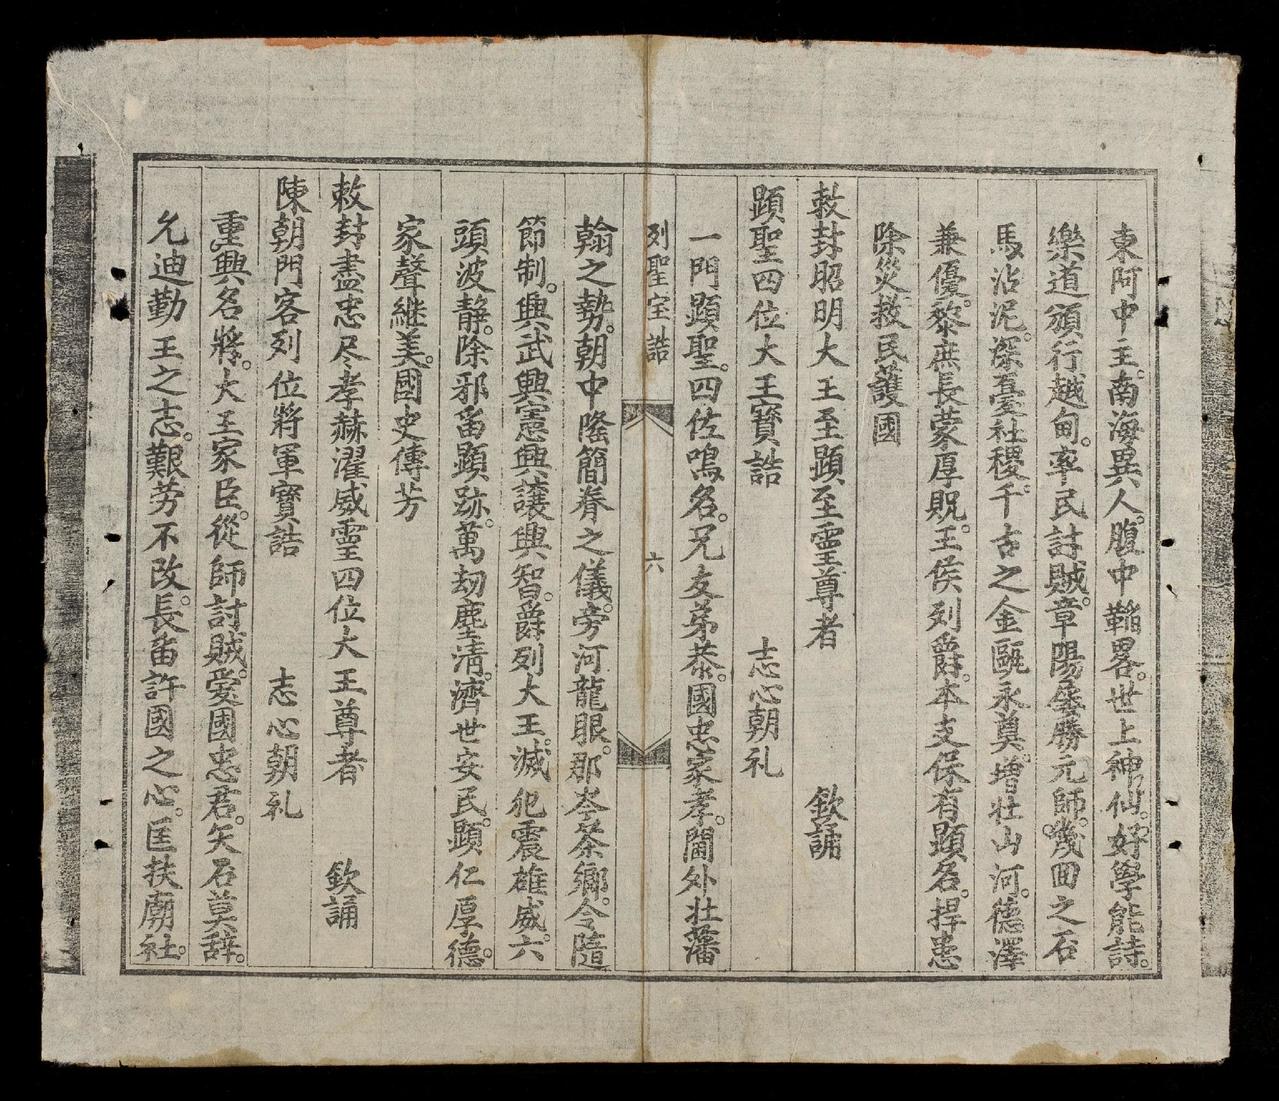 東阿中主。南海異人。腹中韜畧。世上神仙。好學能詩。
樂道頒行越甸。率民討賊。章陽屢勝元師。幾回之石
馬沾泥。深臺社稷。千古之金甌永奠。增壯山河。德澤
兼優。黎庶長蒙厚貺。王侯列爵。本支保有顕名。捍患
除災救民護國
敕封昭明大王至顕至灵尊者 欽誦
顕聖四位大王寳誥 志心朝礼
一門顕聖。四佐鳴名。兄友弟恭。國忠家孝。閫外壮藩
列聖宝誥 六
翰之勢。朝中隆簡眷之儀。旁河龍眼。那岑茶鄉。令隨
節制。興武興憲興讓興智。爵列大王。滅犯震雄威。六
頭波静。除邪畱顕跡。萬劫塵清。濟世安民。顕仁厚德。
家聲継美。國史傳芳
敕封盡忠尽孝赫濯威灵四位大王尊者 欽誦
陳朝門客列位將軍寳誥 志心朝礼
重興名將。大王家臣。從師討賊。愛國忠君。矢石莫辞。
允迪勤王之志。艱劳不改。長畱許國之心。匡扶廟社。